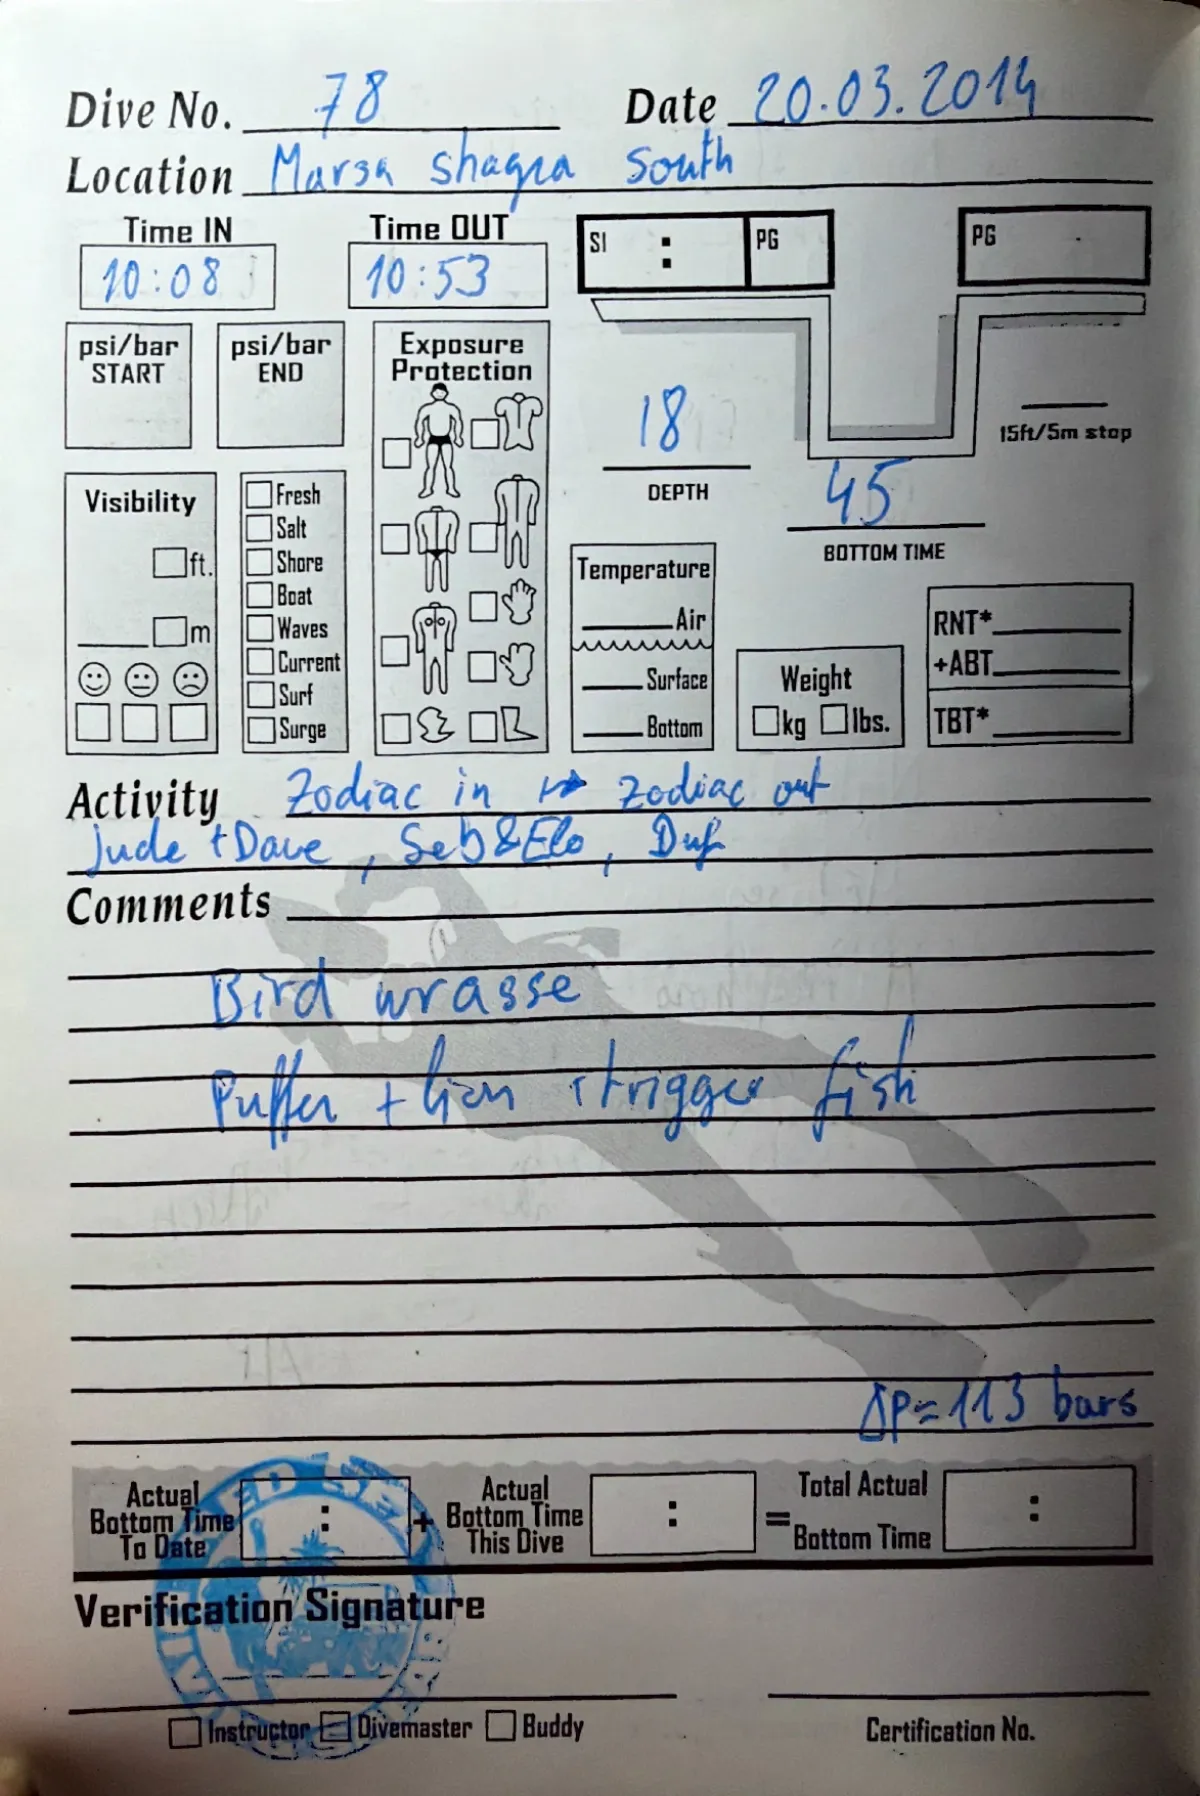 Dive No. 78 Date 20.03.2014
Location Marsa Shagra South
Time IN Time OUT
10:08 10:53
SI : PG PG
psi/bar START psi/bar END
Exposure Protection
18
DEPTH
45
BOTTOM TIME
15ft/5m stop
Visibility
ft.
m
Fresh
Salt
Shore
Boat
Waves
Current
Surf
Surge
Temperature
Air
Surface
Bottom
Weight
kg lbs.
RNT*
+ABT
TBT*
Activity Zodiac in zodiac out
Jude + Dave, Seb & Elo,
Comments
Bird wrasse
Puffer + lion + trigger fish
ΔP≈113 bars
Actual Bottom Time To Date : + Actual Bottom Time This Dive : = Total Actual Bottom Time :
Verification Signature
Instructor Divemaster Buddy Certification No.